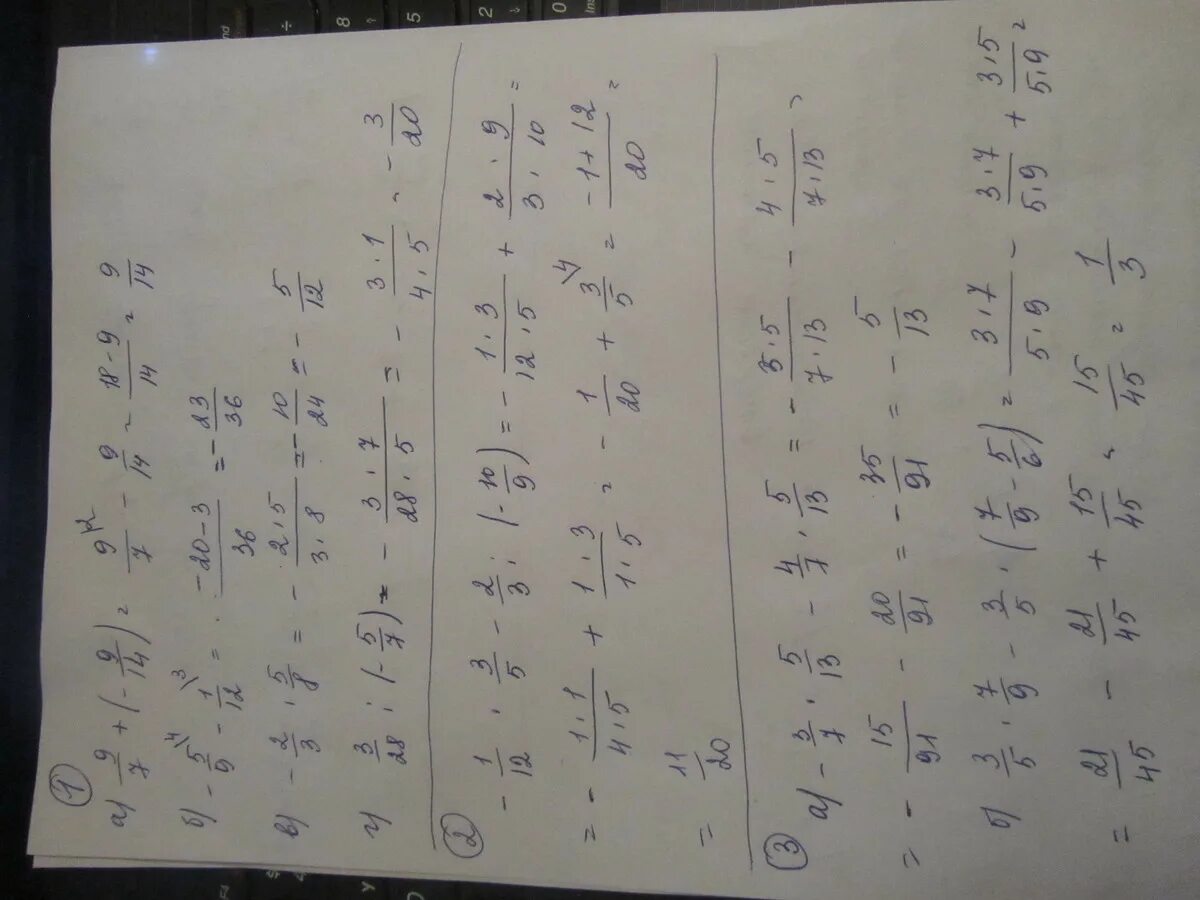 ①
а) 9/7 + (- 9/14) = 9\2/7 - 9/14 = 18-9/14 = 9/14
б) - 5\4/9 - 1\3/12 = -20-3/36 = - 23/36
в) - 2/3 · 5/8 = - 2·5/3·8 = - 10/24 = - 5/12
г) 3/28 : (- 5/7) = - 3·7/28·5 = - 3·1/4·5 = - 3/20
② - 1/12 · 3/5 - 2/3 : (- 10/9) = - 1·3/12·5 + 2·9/3·10 =
= - 1·1/4·5 + 1·3/1·5 = - 1/20 + 3\4/5 = -1+12/20 =
= 11/20
③
а) - 3/7 · 5/13 - 4/7 · 5/13 = - 3·5/7·13 - 4·5/7·13 =
= - 15/91 - 20/91 = - 35/91 = - 5/13
б) 3/5 · 7/9 - 3/5 · (7/9 - 5/6) = 3·7/5·9 - 3·7/5·9 + 3·5/5·9 =
= 21/45 - 21/45 + 15/45 = 15/45 = 1/3